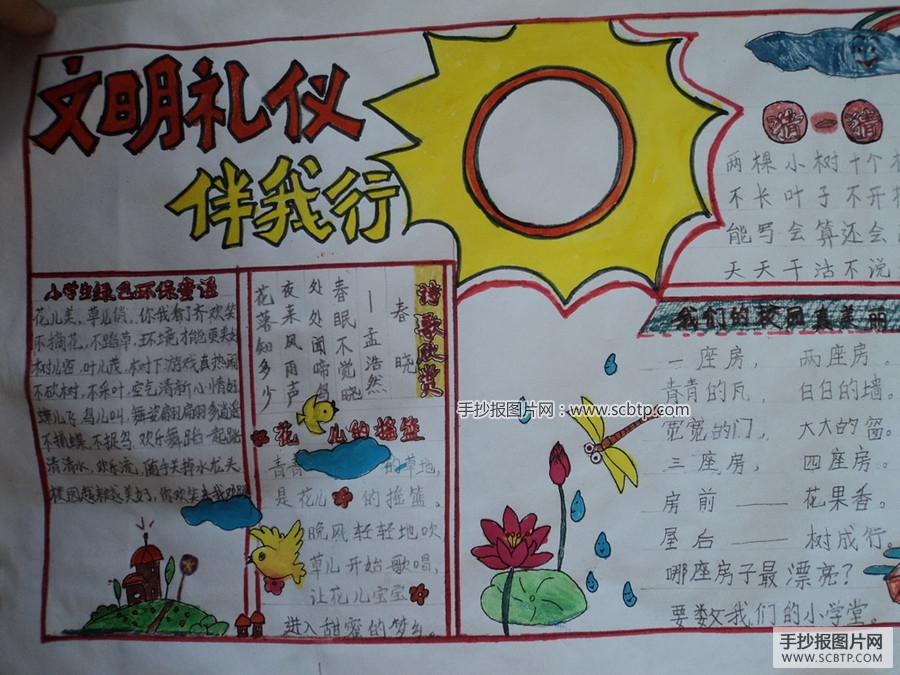 文明礼仪
伴我行
小学生绿色环保童谣
花儿美,草儿俏,你我看了齐欢笑
不摘花,不踏草,环境才能更美好
树儿密,叶儿茂,树下游戏真热闹
不砍树,不采叶,空气清新心情好
蝶儿飞,鸟儿叫,舞姿翩翩多逍遥
不抓蝶,不捉鸟,欢乐舞蹈一起跳
清清水,欢乐流,随手关掉水龙头
校园越来越美好,你欢笑来我欢
诗歌欣赏
春晓
—孟浩然
春眠不觉晓
处处闻啼鸟
夜来风雨声
花落知多少
花儿的摇篮
青青的草地,
是花儿的摇篮。
晚风轻轻地吹
草儿开始歌唱,
让花儿宝宝
进入甜蜜的梦乡。
猜一猜
两棵小树十个
不长叶子不开
能写会算还会
天天干活不说
我们的校园真美丽
一座房, 两座房。
青青的瓦, 白白的墙。
宽宽的门, 大大的窗。
三座房, 四座房。
房前——花果香。
屋后——树成行。
哪座房子最漂亮?
要数我们的小学堂。
手抄报图片网:www.scbtp.com
手抄报图片网
WWW.SCBTP.COM